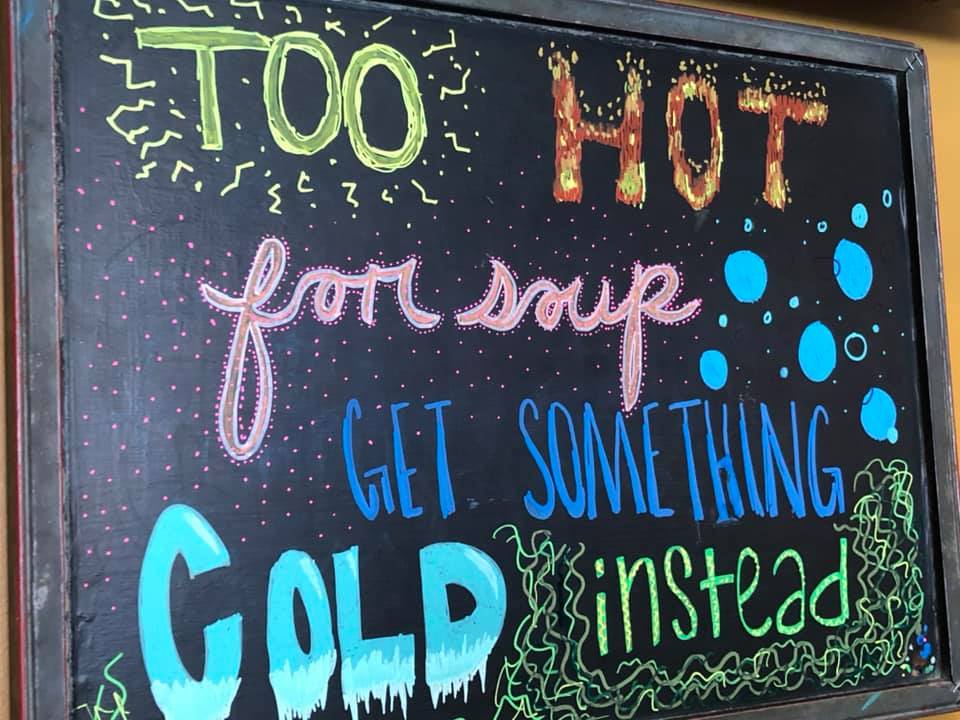 TOO HOT
for soup
GET SOMETHING
COLD instead